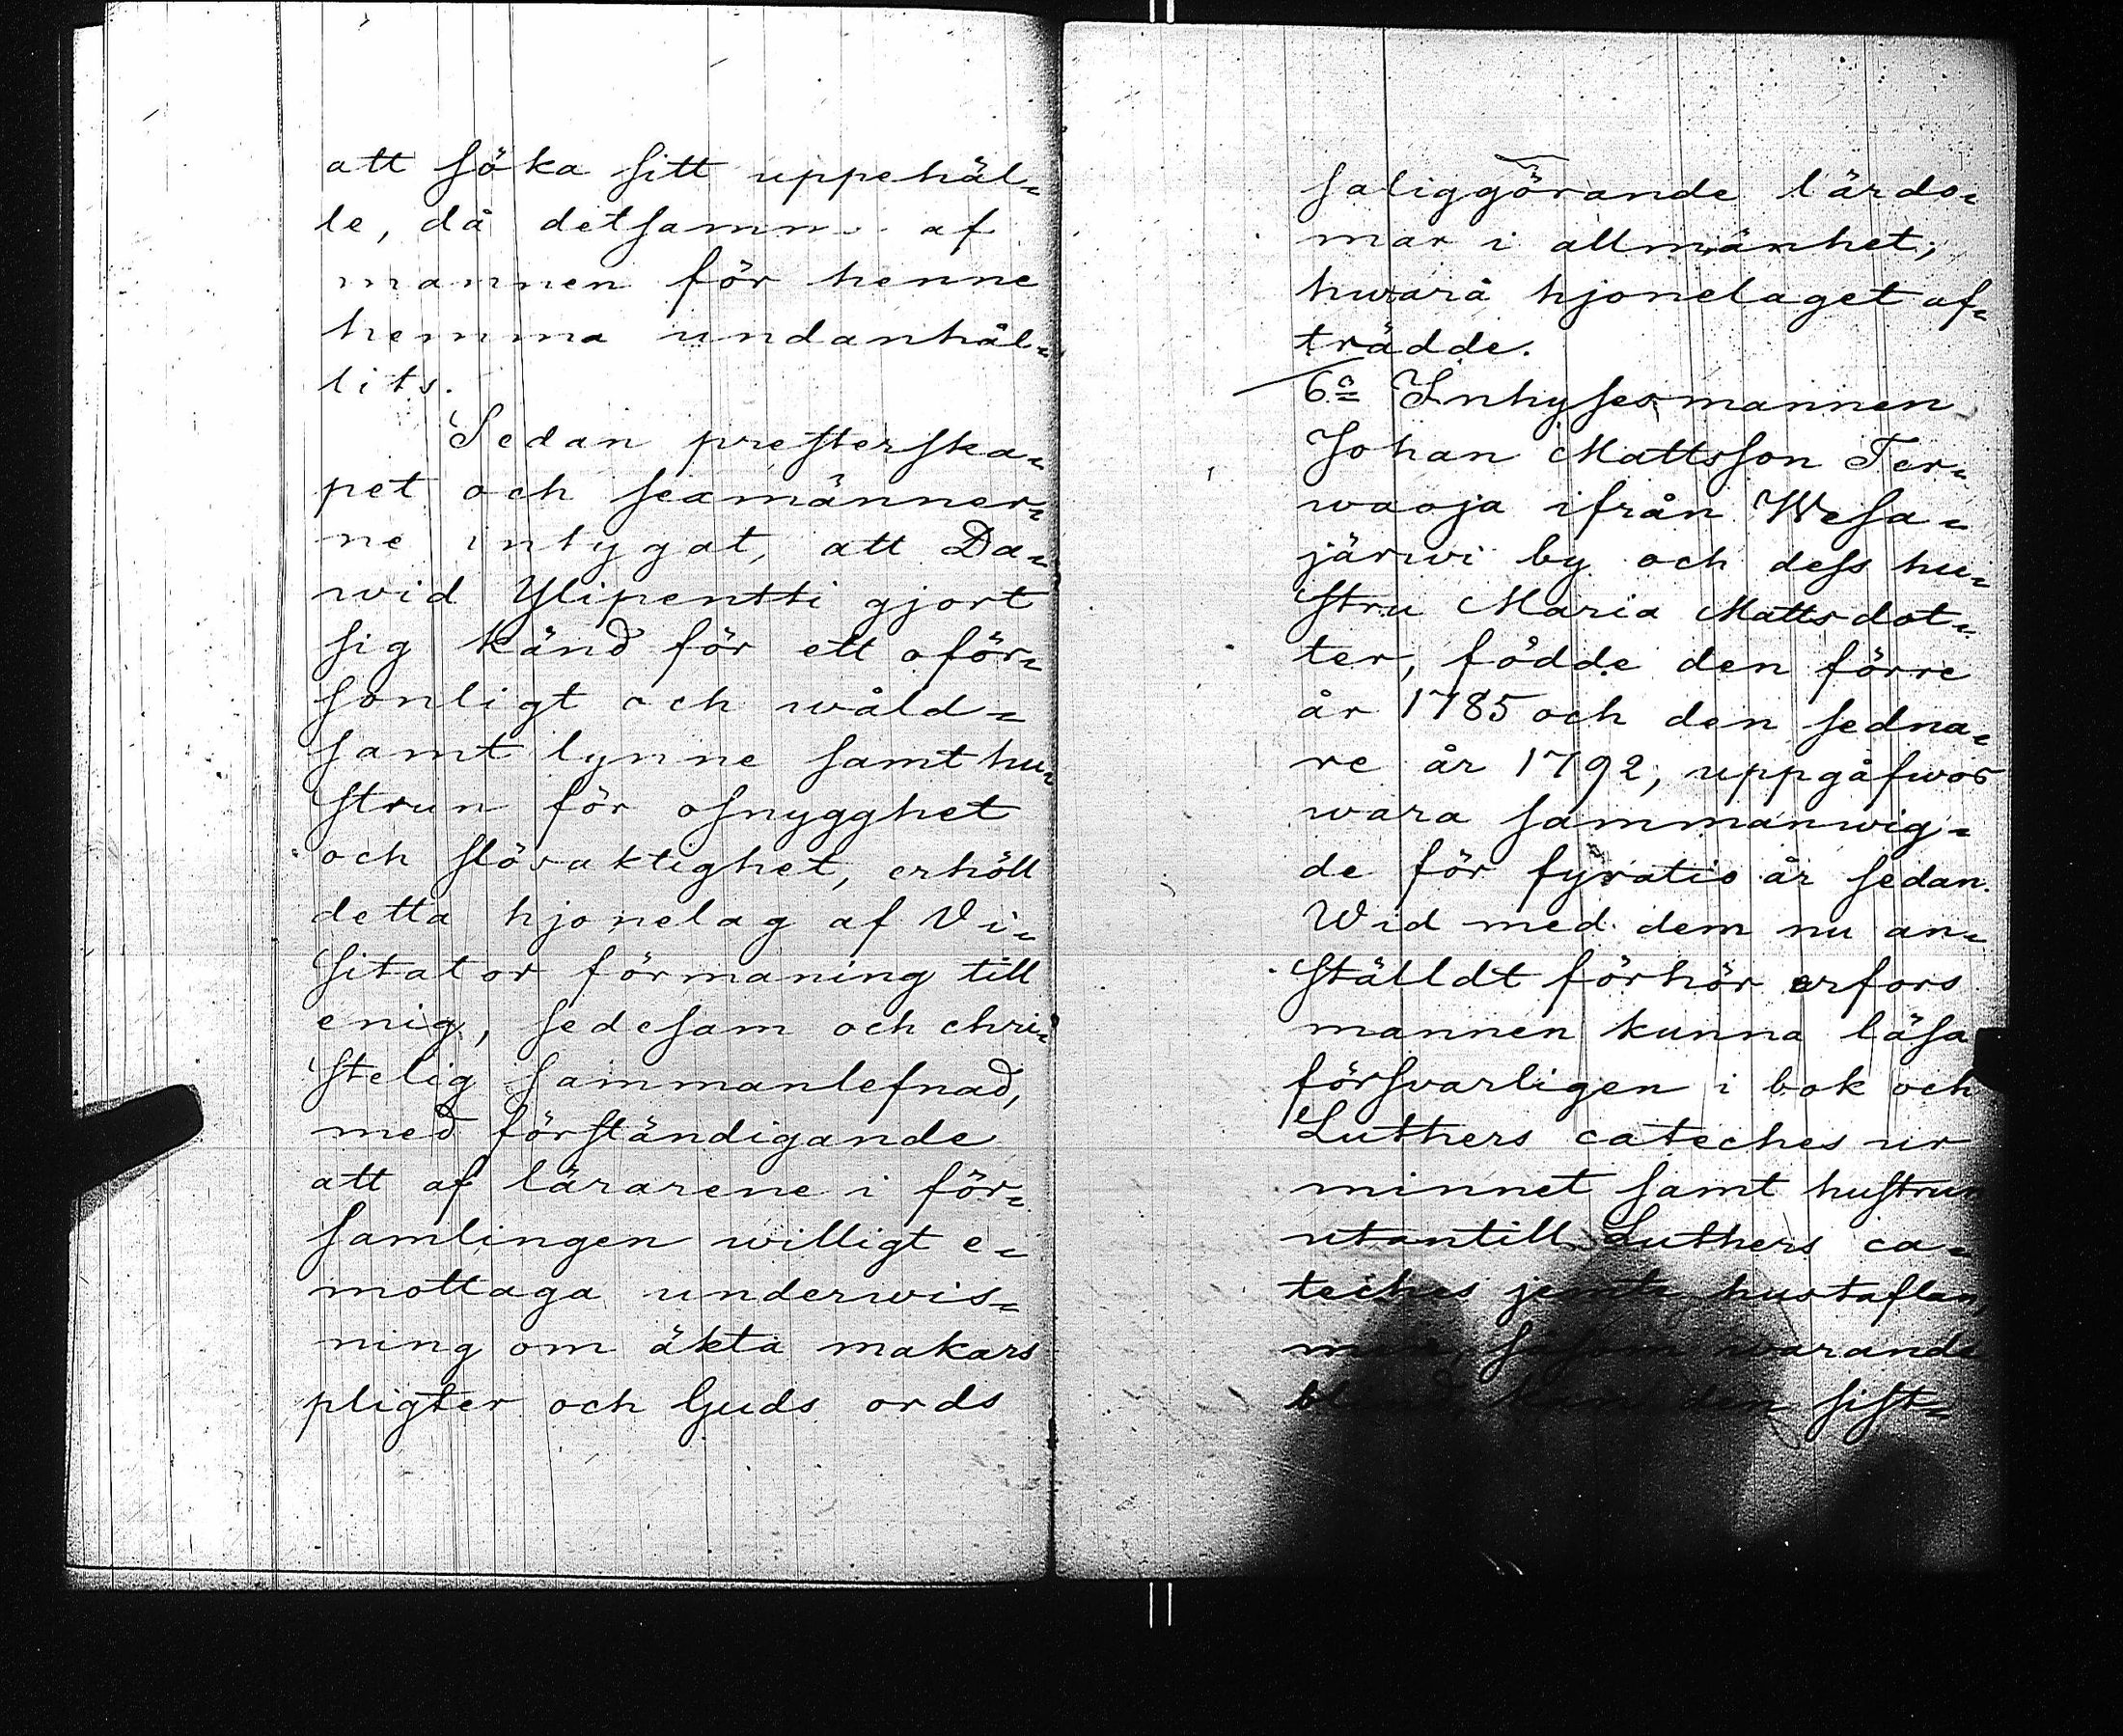 att söka sitt uppehäl-
le, då detsamm af
mannen för henne
hemma undanhål-
lits.
Sedan presterska-
pet och sexmänner-
ne intygat, att Da-
wid Ylipentti gjort
sig känd för ett oför-
sonligt och wåld-
samt lynne samt hu-
strun för osnygghet
och slösaktighet, erhöll
detta hjonelag af Vi-
sitator förmaning till
enig, sedesam och chri-
stelig sammanlefnad,
med förständigande
att af lärarene i för-
samlingen willigt e-
mottaga underwis-
ning om äkta makars
pligter och Guds ords
saliggörande lärdo-
mar i allmänhet,
hwarå hjonelaget af-
trädde.
6o Inhysesmannen
Johan Mattsson Ter-
waoja ifrån Wesa-
järwi by och dess hu-
stru Maria Mattsdot-
ter, födde den förre
år 1785 och den sedna-
re år 1792, uppgåfwos
wara sammanwig-
de för fyratio år sedan.
Wid med dem nu an-
ställdt förhör erfors
mannen kunna läsa
försvarligen i bok och
Luthers cateches ur
minnet samt hustrun
utantill Luthers ca-
teches jemte hustaflan,
warande
kan den sist-